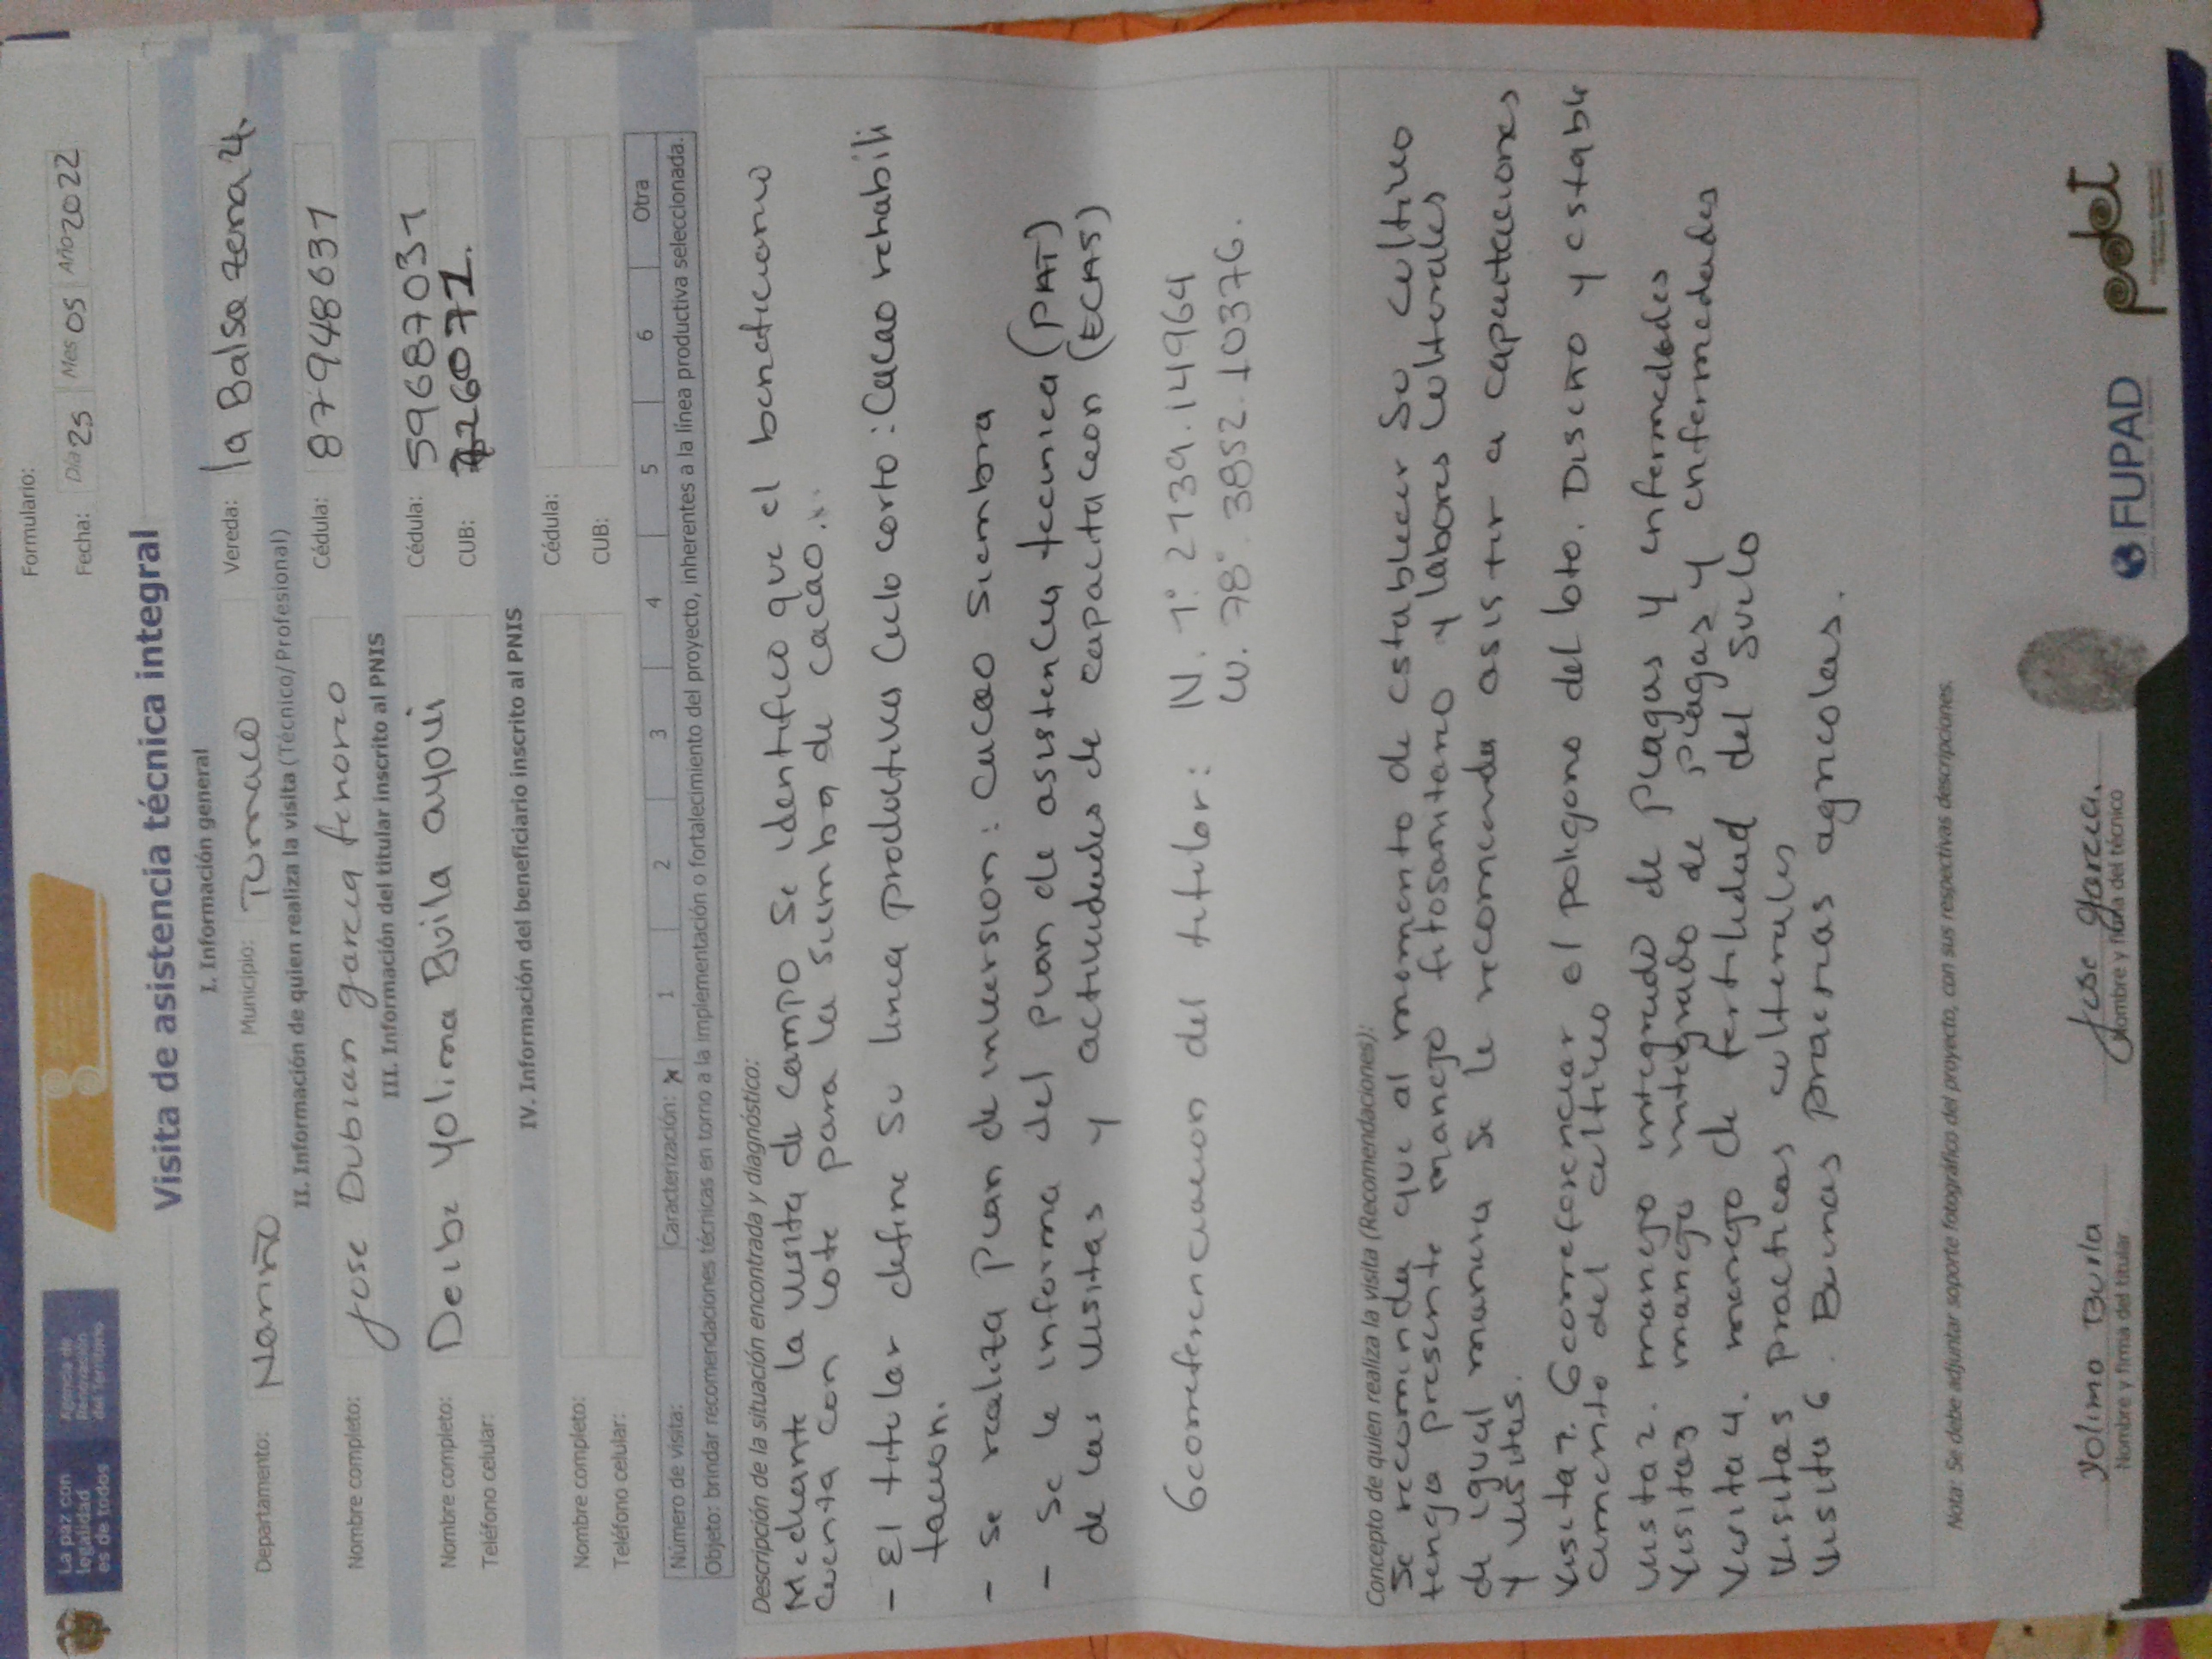 La paz con
legalidad
es de todos
Agencia de
Renovación
del Territorio
Formulario:
Fecha: Día 25 Mes 05 Año 2022
Visita de asistencia técnica integral
I. Información general
Departamento: Nariño Municipio: Tumaco Vereda: la Balsa zona 4.
II. Información de quien realiza la visita (Técnico/Profesional)
Nombre completo: Jose Dubian garcia tenorio Cédula: 87948631
III. Información del titular inscrito al PNIS
Nombre completo: Deibe Yolima Buila ayovi Cédula: 59687031
Teléfono celular: CUB: 26071.
IV. Información del beneficiario inscrito al PNIS
Nombre completo: Cédula:
Teléfono celular: CUB:
Número de visita: Caracterización: x 1 2 3 4 5 6 Otra
Objeto: brindar recomendaciones técnicas en torno a la implementación o fortalecimiento del proyecto, inherentes a la línea productiva seleccionada.
Descripción de la situación encontrada y diagnóstico:
Mediante la visita de campo se identifico que el beneficiario
cuenta con lote para la siembra de cacao.
- El titular define su linea productiva Ciclo corto: Cacao rehabili
tacion.
- se realiza plan de inversion: cacao siembra
- se le informa del plan de asistencia tecnica (PAT)
de las visitas y actividades de capacitacion (ECAS)
Georeferenciacion del titular: N. 1°. 2739.14964
W. 78°. 3852.10376.
Concepto de quien realiza la visita (Recomendaciones):
Se recomienda que al momento de establecer su cultivo
tenga presente manejo fitosanitario y labores culturales
de igual manera se le recomienda asistir a capacitaciones
y visitas.
Visita 1. Georreferenciar el poligono del lote. Diseño y estable
cimiento del cultivo
visita 2. manejo integrado de plagas y enfermedades
Visita 3 manejo integrado de plagas y enfermedades
Visita 4. manejo de fertilidad del suelo
Visita 5 practicas culturales
Visita 6. Buenas practicas agricolas.
Nota: Se debe adjuntar soporte fotográfico del proyecto, con sus respectivas descripciones.
Yolima Buila
Nombre y firma del titular
Jose garcia.
Nombre y firma del técnico
FUPAD
pdet